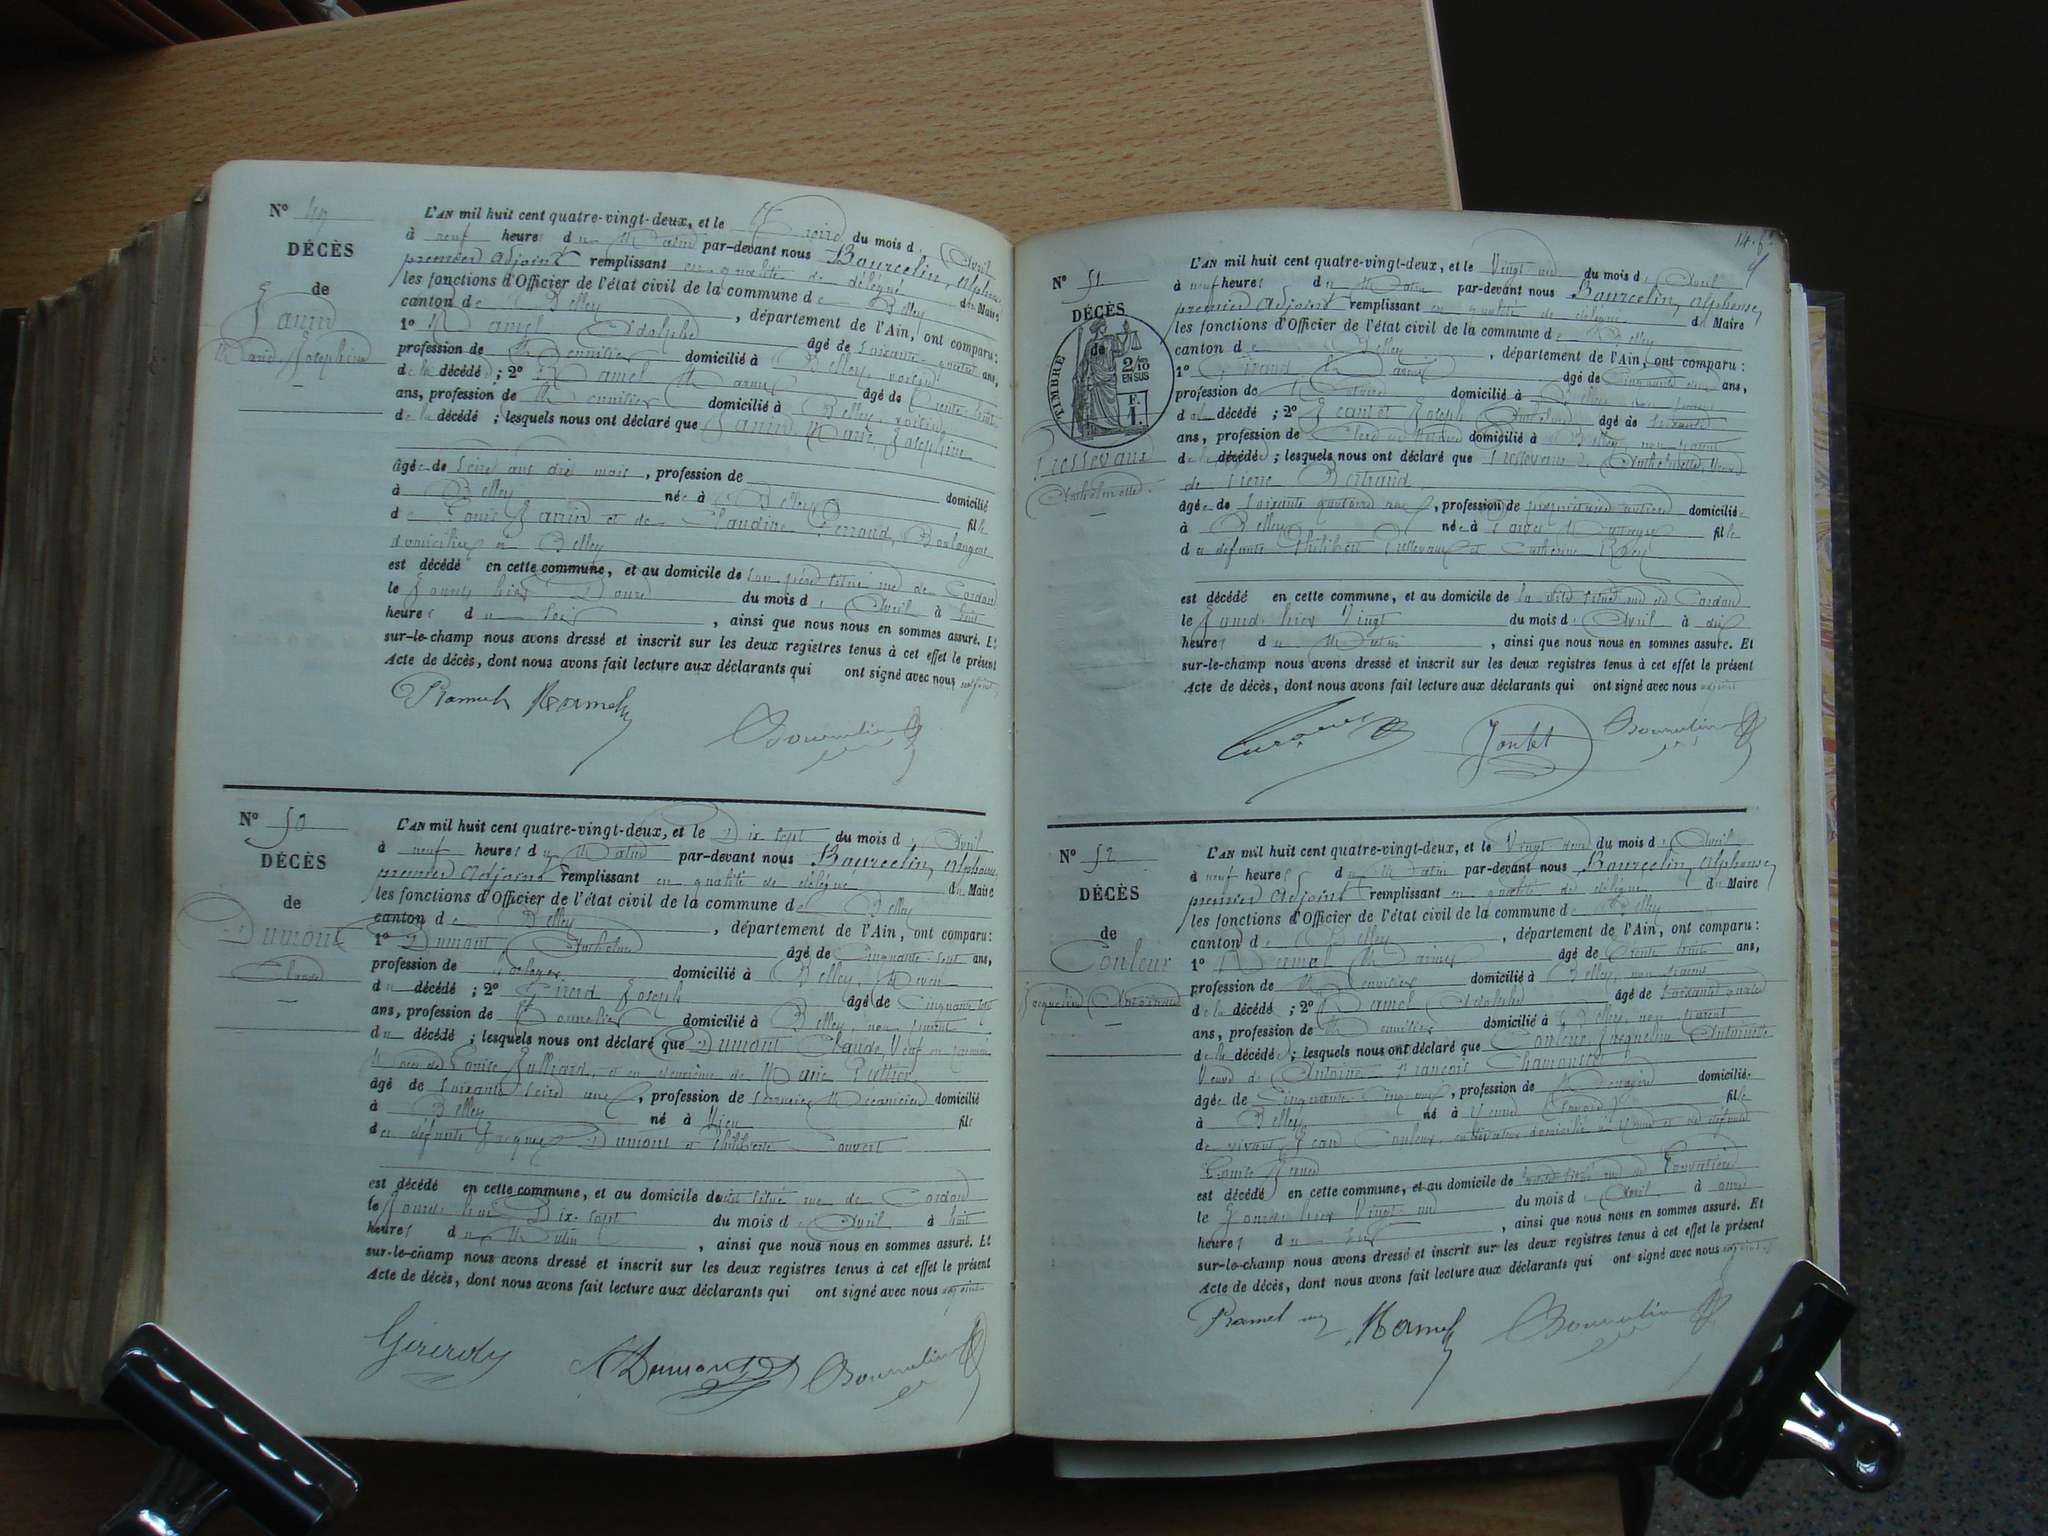 N° 49
DÉCÈS
de
Janin
Marie Josephine
L'AN mil huit cent quatre-vingt-deux, et le Treize du mois d'Avril
à neuf heures du Matin par-devant nous Bourcelin, Alphonse
premier Adjoint remplissant en qualité de délégué du Maire
les fonctions d'Officier de l'état civil de la commune de Belley
canton de Belley, département de l'Ain, ont comparu:
1° Ramel Adolphe âgé de soixante quatre ans,
profession de Menuisier domicilié à Belley, voisin
de la décédée; 2° Ramel Marius âgé de trente huit
ans, profession de Menuisier domicilié à Belley, voisin
de la décédé; lesquels nous ont déclaré que Janin, Marie Josephine
âgée de seize ans dix mois, profession de domicilié
à Belley née à Belley fille
de Louis Janin et de Claudine Perraud, Boulangers
domiciliés à Belley
est décédé en cette commune, et au domicile de son père situé rue de Cordon
le Jour d'hier Douze du mois d'Avril à huit
heures du soir, ainsi que nous nous en sommes assuré. Et
sur-le-champ nous avons dressé et inscrit sur les deux registres tenus à cet effet le présent
Acte de décès, dont nous avons fait lecture aux déclarants qui ont signé avec nous adjoint
Ramel Ramel Bourcelin
N° 50
DÉCÈS
de
Dumont
Claude
L'AN mil huit cent quatre-vingt-deux, et le Dix sept du mois d'Avril
à neuf heures du Matin par-devant nous Bourcelin, Alphonse,
premier Adjoint remplissant en qualité de délégué du Maire
les fonctions d'Officier de l'état civil de la commune de Belley
canton de Belley, département de l'Ain, ont comparu:
1° Dumont Anthelme âgé de Cinquante sept ans,
profession de Horloger domicilié à Belley, Neveu
du décédé; 2° Girerd Joseph âgé de Cinquante
ans, profession de Tonnelier domicilié à Belley, non parent
du décédé; lesquels nous ont déclaré que Dumont Claude, Veuf en premières
Noces de Louise Julliard, et en deuxième de Marie
âgé de soixante seize ans, profession de Serrurier Mécanicien domicilié
à Belley né à Lieu fils
des défunts Jacques Dumont et Philiberte Couvert
est décédé en cette commune, et au domicile de situé rue de Cordon
le Jour Dix-sept du mois d'Avril à huit
heures du Matin, ainsi que nous nous en sommes assuré. Et
sur-le-champ nous avons dressé et inscrit sur les deux registres tenus à cet effet le présent
Acte de décès, dont nous avons fait lecture aux déclarants qui ont signé avec nous adjoint
Girerd Js ADumont Bourcelin
14.
N° 51
DÉCÈS
de
TIMBRE
2/10
EN SUS
F.
1.
Pressevaux
Anthelmette
L'AN mil huit cent quatre-vingt-deux, et le Vingt un du mois d'Avril
à neuf heures du Matin par-devant nous Bourcelin, Alphonse,
premier Adjoint remplissant en qualité de délégué du Maire
les fonctions d'Officier de l'état civil de la commune de Belley
canton de Belley, département de l'Ain, ont comparu:
1° Marius âgé de Cinquante ans,
profession de Notaire domicilié à Belley, non parent
de la décédé; 2° Joseph Anthelme âgé de soixante
ans, profession de Clerc de Notaire domicilié à Belley, non parent
de la décédé; lesquels nous ont déclaré que Pressevaux, Anthelmette, Veuve
de Pierre Bertrand
âgée de soixante quatorze ans, profession de propriétaire rentière domiciliée
à Belley née à fille
des défunts Philibert Pressevaux et Catherine
est décédé en cette commune, et au domicile de situé rue de Cordon
le Jour d'hier Vingt du mois d'Avril à dix
heures du Matin, ainsi que nous nous en sommes assuré. Et
sur-le-champ nous avons dressé et inscrit sur les deux registres tenus à cet effet le présent
Acte de décès, dont nous avons fait lecture aux déclarants qui ont signé avec nous adjoint
Bourcelin
N° 52
DÉCÈS
de
Couleur
Jacqueline Antoinette
L'AN mil huit cent quatre-vingt-deux, et le Vingt deux du mois d'Avril
à neuf heures du Matin par-devant nous Bourcelin, Alphonse,
premier Adjoint remplissant en qualité de délégué du Maire
les fonctions d'Officier de l'état civil de la commune de Belley
canton de Belley, département de l'Ain, ont comparu:
1° Ramel Marius âgé de trente huit ans,
profession de Menuisier domicilié à Belley, non parent
de la décédée; 2° Ramel Adolphe âgé de soixante quatre
ans, profession de Menuisier domicilié à Belley, non parent
de la décédée; lesquels nous ont déclaré que Couleur Jacqueline Antoinette
Veuve de Antoine François
âgée de Cinquante Cinq ans, profession de Ménagère domiciliée
à Belley, né à Yenne (Savoie) fille
de vivant Jean Couleur, cultivateur domicilié à Yenne et de défunte
Louise
est décédé en cette commune, et au domicile de situé rue de
le Jour d'hier Vingt un du mois d'Avril à onze
heures du soir, ainsi que nous nous en sommes assuré. Et
sur-le-champ nous avons dressé et inscrit sur les deux registres tenus à cet effet le présent
Acte de décès, dont nous avons fait lecture aux déclarants qui ont signé avec nous adjoint
Ramel Ramel Bourcelin